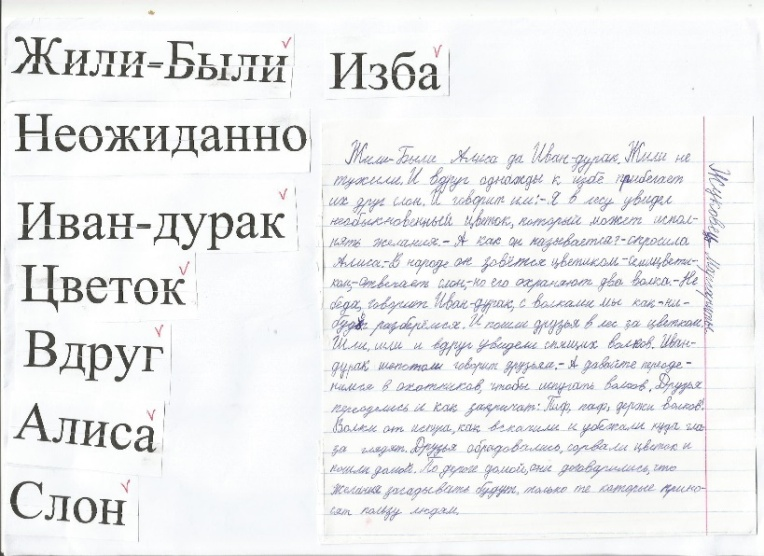 Жили-Были
Изба
Неожиданно
Иван-дурак
Цветок
Вдруг
Алиса
Слон
Жили-Были Алиса да Иван-дурак. Жили не
тужили. И вдруг однажды к избе прибегает
их друг слон. И говорит им:-Я в лесу увидел
необыкновенный цветок, который может испол-
нять желания.-А как он называется?-спросила
Алиса.-В народе он зовётся цветиком-семицвети-
ком-отвечает слон,-но его охраняют два волка.-Не
беда, говорит Иван-дурак, с волками мы как-ни-
будь разберёмся. И пошли друзья в лес за цветком.
Шли, шли и вдруг увидели спящих волков. Иван-
дурак шепотом говорит друзьям.-А давайте переоде-
немся в охотников, чтобы испугать волков. Друзья
переоделись и как закричат: Пиф, паф, держи волков!
Волки от испуга, как вскочили и убежали куда гла-
за глядят. Друзья обрадовались, сорвали цветок и
пошли домой. По дороге домой, они договорились, что
желания загадывать будут, только те которые прино-
сят пользу людям.